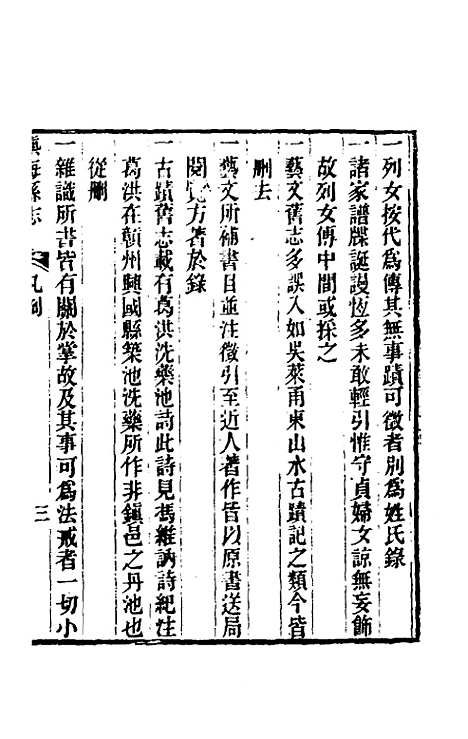 一列女按代為傳其無事蹟可徵者別為姓氏錄
一諸家譜牒誕謾恆多未敢輕引惟守貞婦女諒無妄飾
故列女傳中間或採之
一藝文舊志多誤入如吳萊甬東山水古蹟記之類今皆
刪去
一藝文所補書目並注徵引至近人著作皆以原書送局
閱覽方著於錄
一古蹟舊志載有葛洪洗藥池詩此詩見馮維訥詩紀注
葛洪在贑州興國縣築池洗藥所作非鎮邑之丹池也
從刪
一雜識所書皆有關於掌故及其事可為法戒者一切小
鎮海縣志 凡例 三